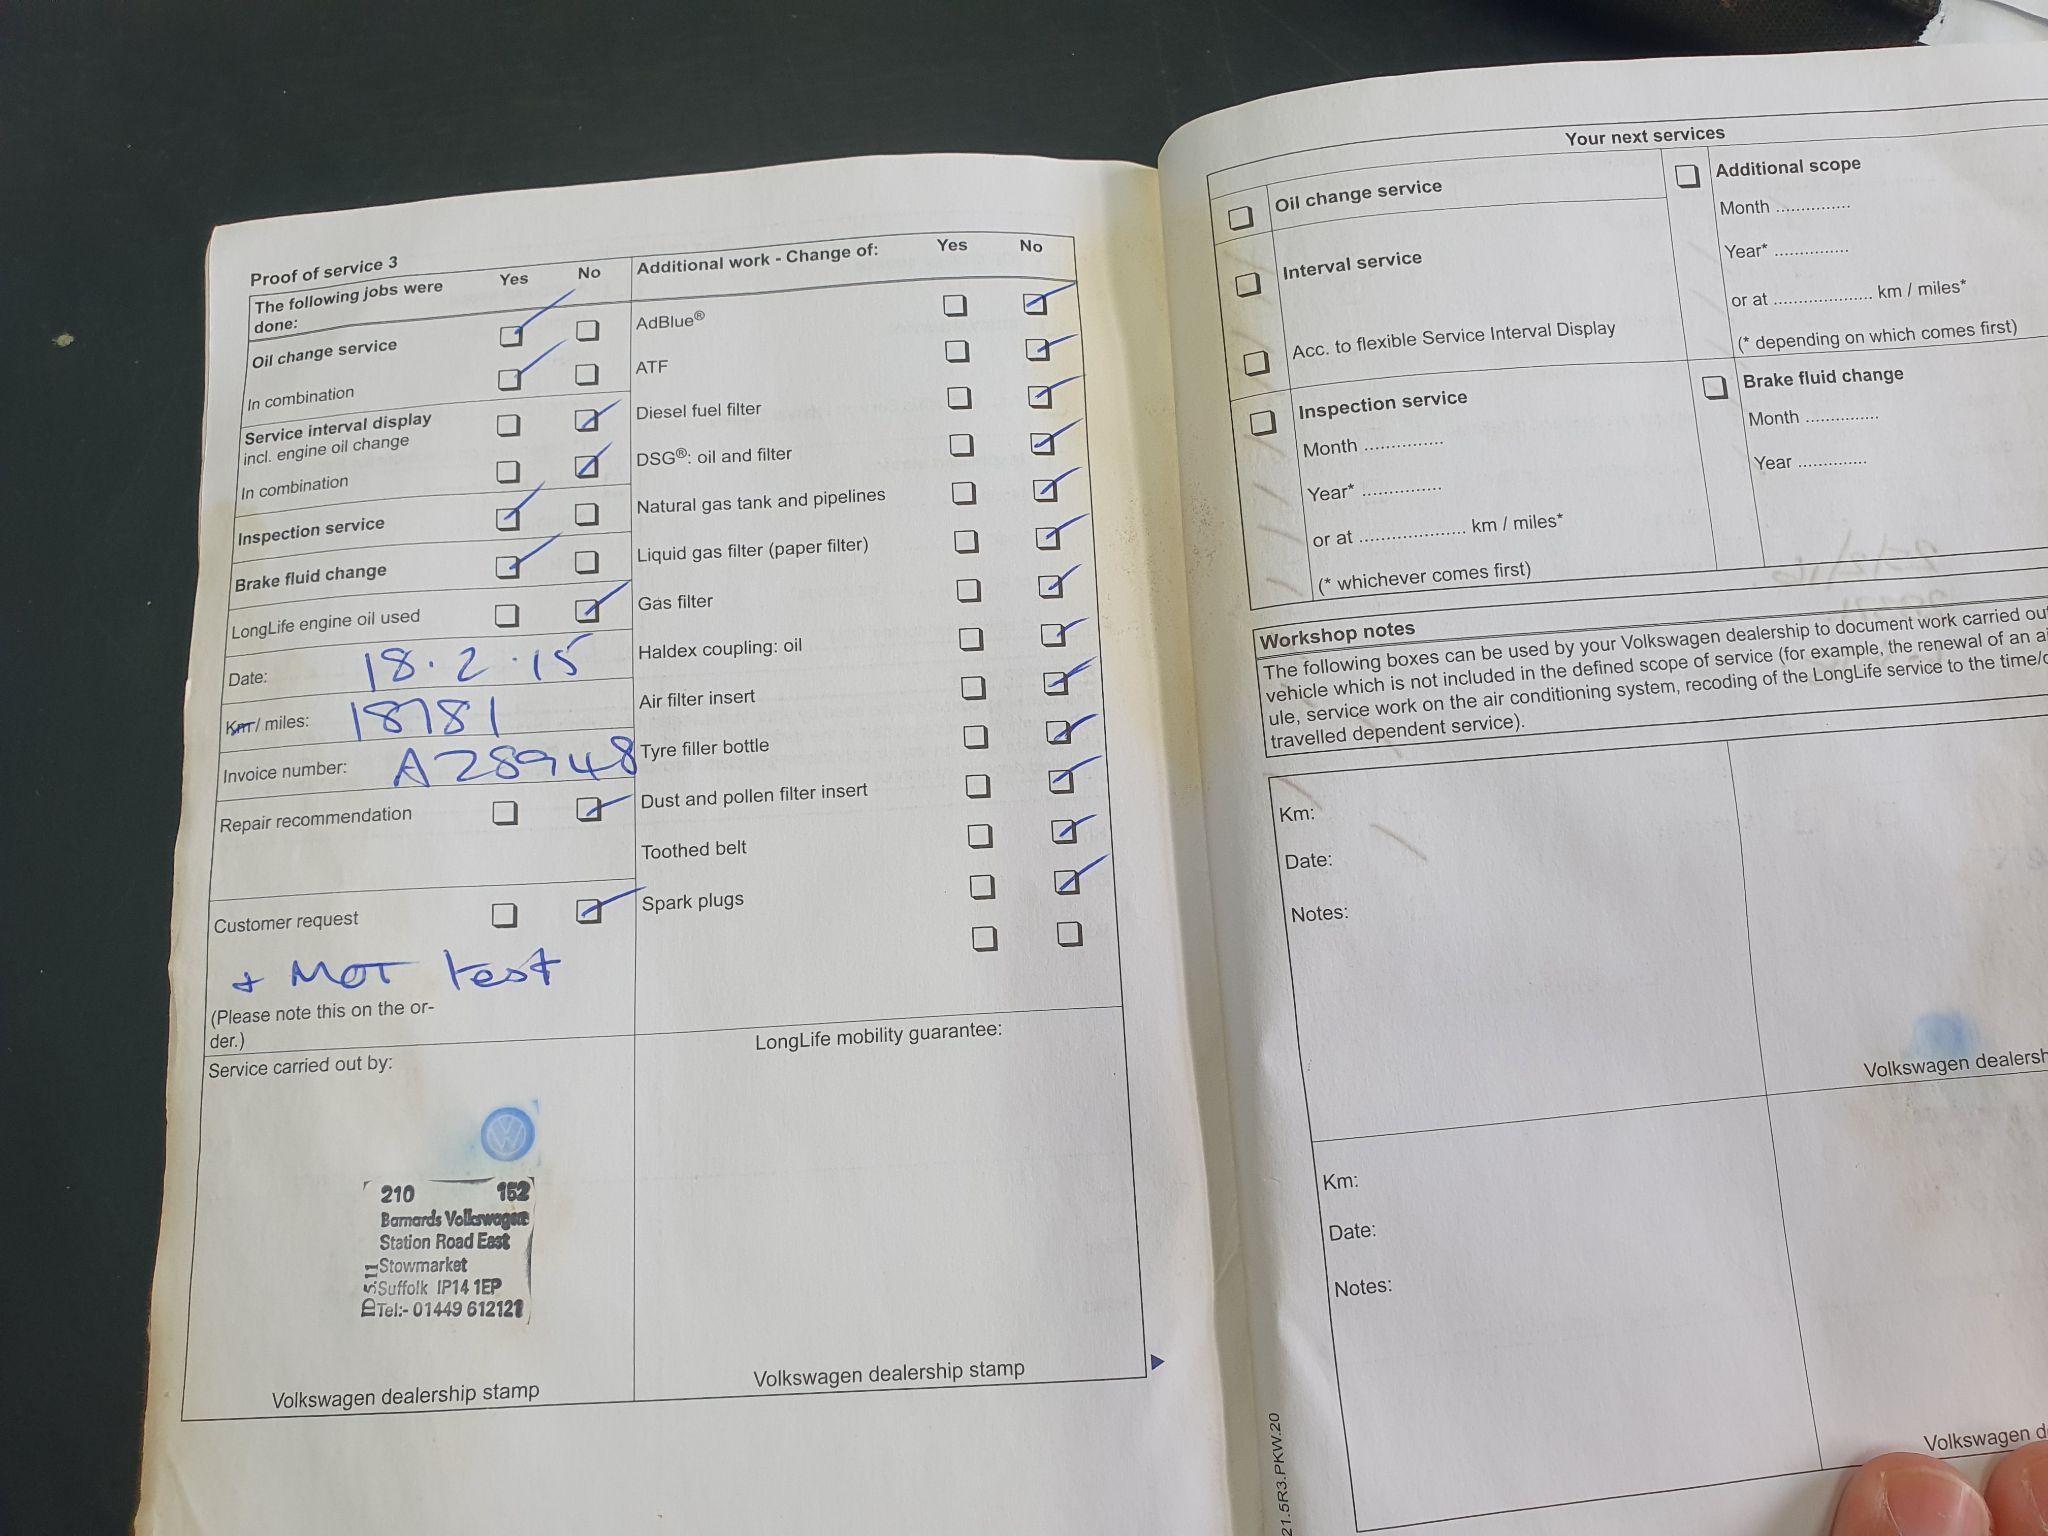 Proof of service 3
The following jobs were
done:
Yes No
Oil change service
In combination
Service interval display
incl. engine oil change
In combination
Inspection service
Brake fluid change
LongLife engine oil used
Date: 18.2.15
Km / miles: 18781
Invoice number: A28948
Repair recommendation
Customer request
+ MOT test
(Please note this on the or-
der.)
Service carried out by:
210 152
Barnards Volkswagen
Station Road East
Stowmarket
Suffolk IP14 1EP
Tel:- 01449 612121
Volkswagen dealership stamp
Additional work - Change of: Yes No
AdBlue®
ATF
Diesel fuel filter
DSG®: oil and filter
Natural gas tank and pipelines
Liquid gas filter (paper filter)
Gas filter
Haldex coupling: oil
Air filter insert
Tyre filler bottle
Dust and pollen filter insert
Toothed belt
Spark plugs
LongLife mobility guarantee:
Volkswagen dealership stamp
Your next services
Oil change service
Interval service
Acc. to flexible Service Interval Display
Inspection service
Month ...............
Year* ...............
or at .................... km / miles*
(* whichever comes first)
Additional scope
Month ..............
Year* ..............
or at .................... km / miles*
(* depending on which comes first)
Brake fluid change
Month ..............
Year .............
Workshop notes
The following boxes can be used by your Volkswagen dealership to document work carried ou
vehicle which is not included in the defined scope of service (for example, the renewal of an
ule, service work on the air conditioning system, recoding of the LongLife service to the
travelled dependent service).
Km:
Date:
Notes:
Volkswagen dealersh
Km:
Date:
Notes:
Volkswagen d
21.5R3.PKW.20